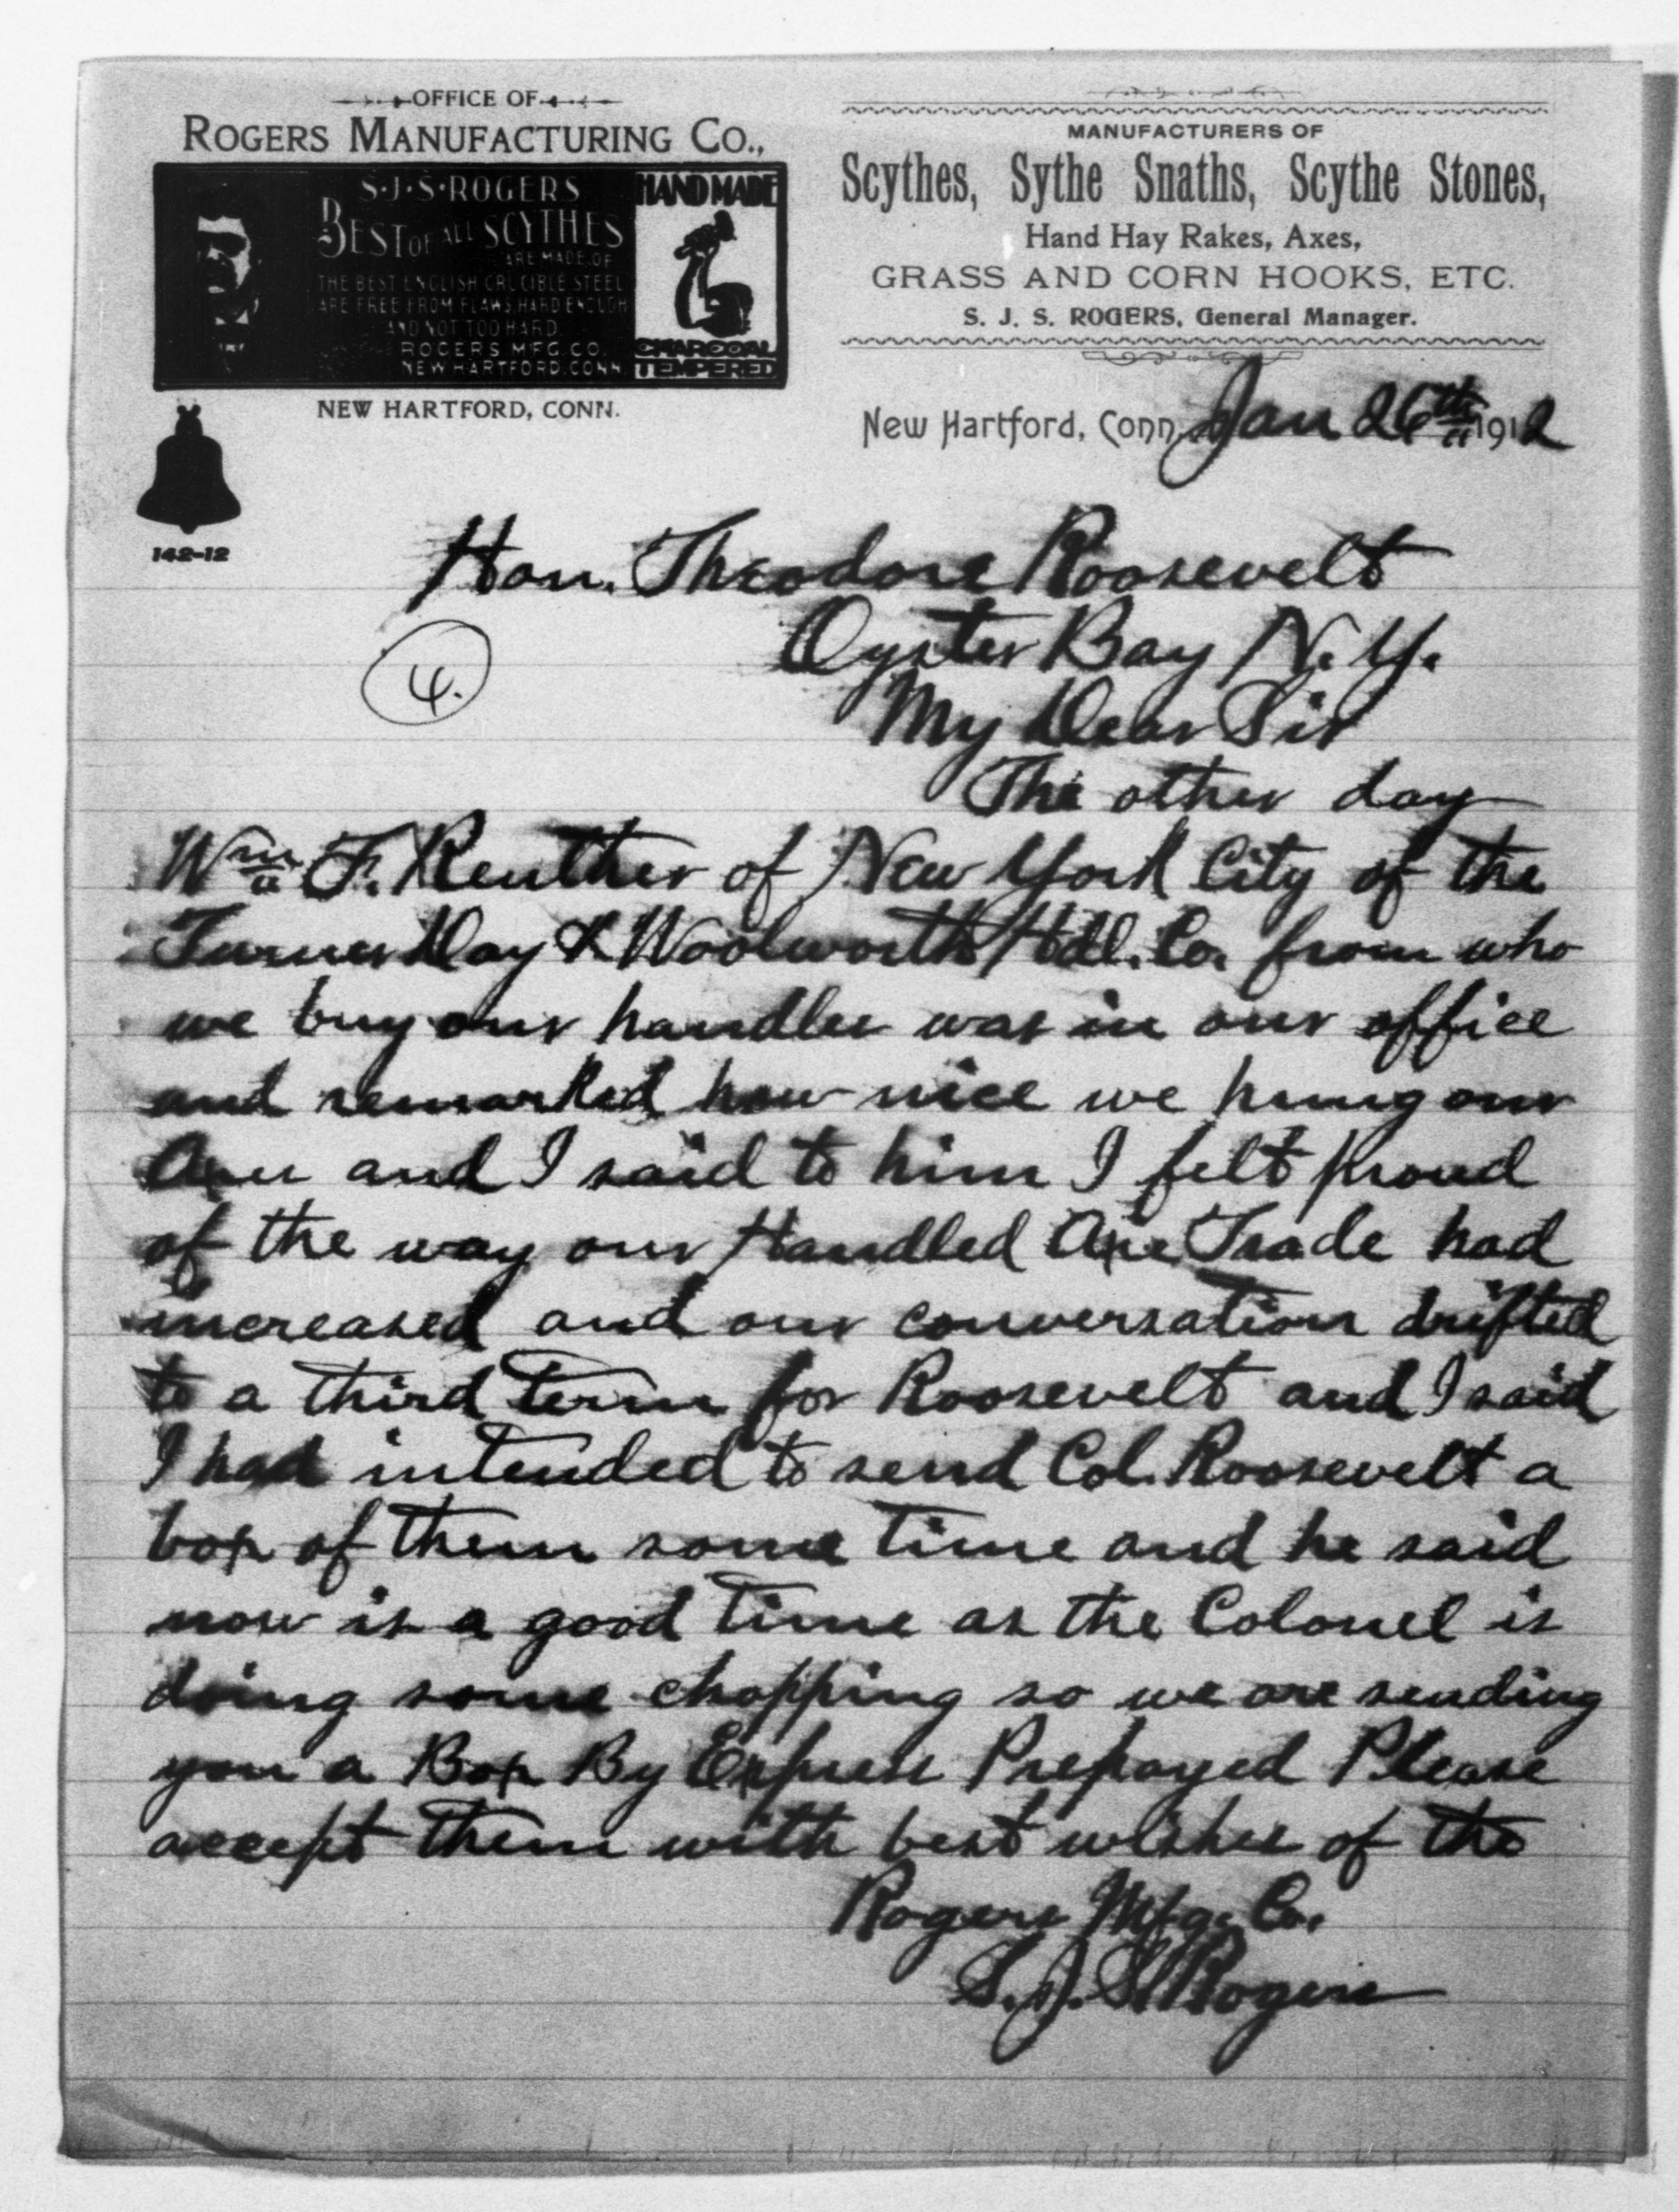 OFFICE OF
ROGERS MANUFACTURING CO.,
S·J·S·ROGERS
BEST OF ALL SCYTHES
ARE MADE OF
THE BEST ENGLISH CRUCIBLE STEEL
ARE FREE FROM FLAWS. HARD ENOUGH
AND NOT TOO HARD.
ROGERS MFG. CO.
NEW HARTFORD. CONN.
HAND MADE
CHARCOAL
TEMPERED
NEW HARTFORD, CONN.
142-12
MANUFACTURERS OF
Scythes, Sythe Snaths, Scythe Stones,
Hand Hay Rakes, Axes,
GRASS AND CORN HOOKS, ETC.
S. J. S. ROGERS, General Manager.
New Hartford, Conn. Jan 26th 1912
Hon. Theodore Roosevelt
Oyster Bay N.Y.
4.
My Dear Sir
The other day
Wm F. Reuther of New York City of the
Turner Day & Woolworth Hdl. Co. from who
we buy our handles was in our office
and remarked how nice we hung our
Axes and I said to him I felt proud
of the way our Handled Axe Trade had
increased and our conversation drifted
to a third term for Roosevelt and I said
I had intended to send Col. Roosevelt a
box of them some time and he said
now is a good time as the Colonel is
doing some chopping so we are sending
you a Box By Express Prepayed Please
accept them with best wishes of the
Rogers Mfg. Co.
S. J. S. Rogers